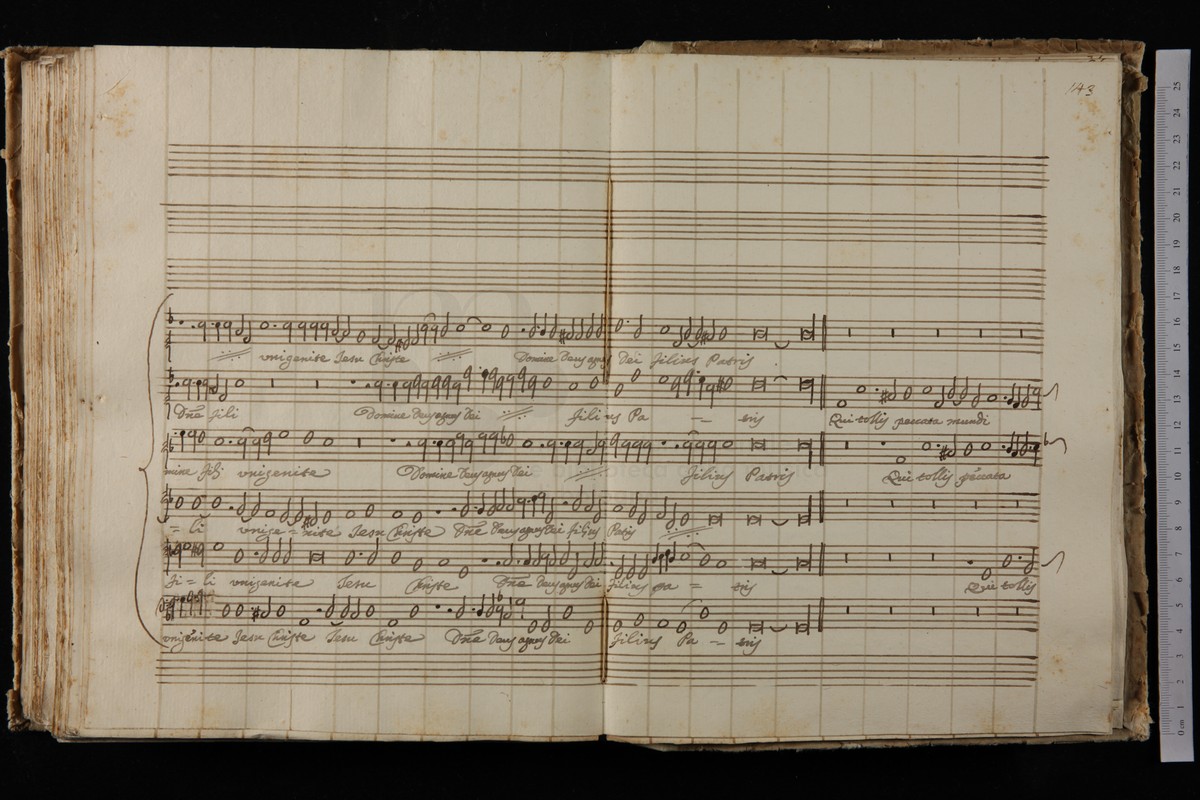 143
unigenite Jesu Christe Domine Deus agnus Dei filius Patris
Dñe fili Domine Deus agnus Dei filius Pa - tris Qui tollis peccata mundi
mine fili unigenite Domine Deus agnus Dei filius Patris Qui tollis peccata
= li unige = nite Jesu Christe Dñe Deus agnus Dei filius Patris
fi = li unigenite Jesu Christe Dñe Deus agnus Dei filius pa = tris Qui tollis
unigenite Jesu Christe Jesu Christe Dñe Deus agnus Dei filius Pa - tris